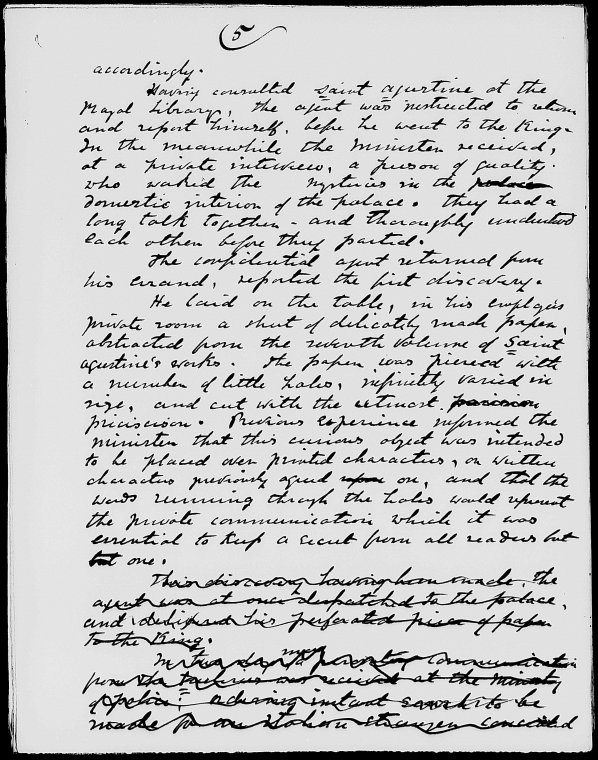 5
accordingly.
Having consulted Saint Agustine at the
Royal Library, the agent was instructed to return
and report himself, before he went to the King.
In the meanwhile the minister received,
at a private interview, a person of quality
who waked the mysteries in the palace
domestic interior of the palace. They had a
long talk together - and thoroughly understood
each other before they parted.
The confidential agent returned from
his errand, reported the first discovery.
He laid on the table, in his employer's
private room a sheet of delicately made paper,
abstracted from the seventh volume of Saint
Agustine's works. The paper was pierced with
a number of little holes, infinitely varied in
size, and cut with the utmost precision
priciscion. Previous experience informed the
minister that this curious object was intended
to be placed over printed characters, or written
characters previously agreed upon on, and that the
words running through the holes would represent
the private communication which it was
essential to keep a secret from all readers but
but one.
This discovery having been made, the
agent was at once despatched to the palace,
and delivered his perforated piece of paper
to the King.
In two days more communication
from the was received at the Ministry
of Police: "advising instant search to be
made for an Italian stranger concealed